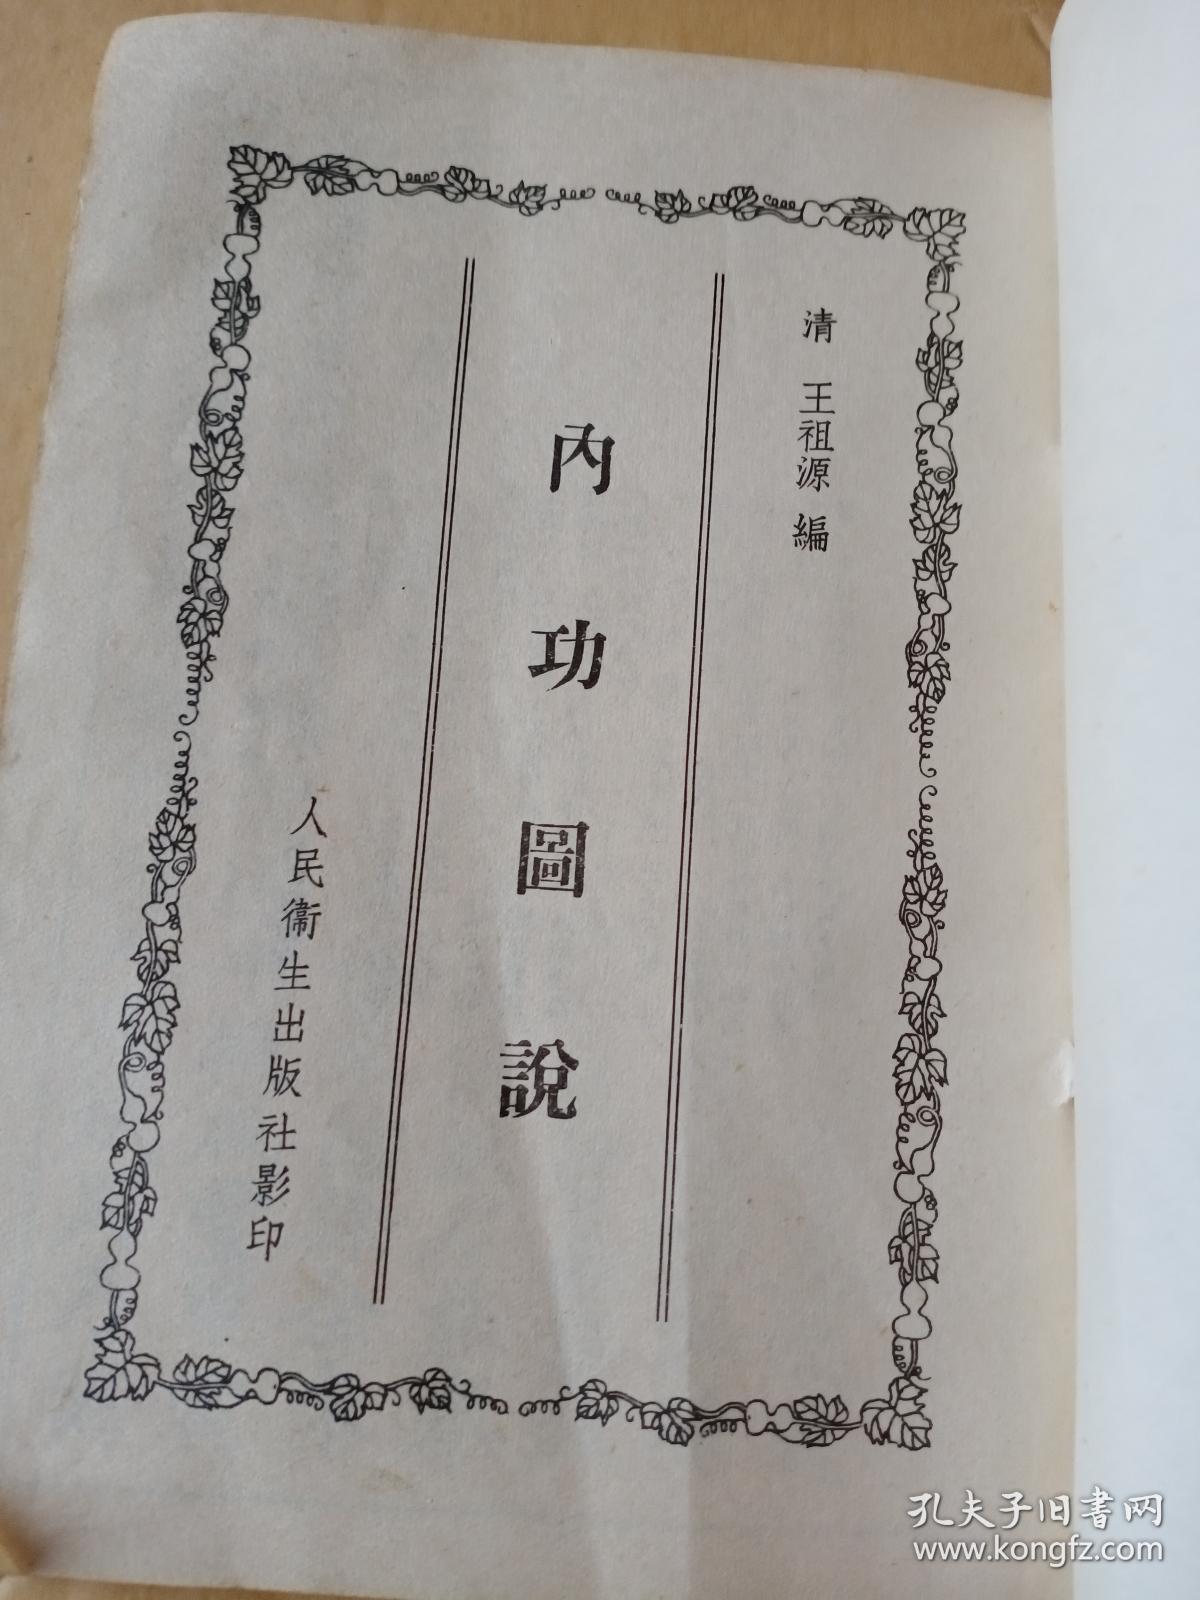 清 王祖源 編
內功圖說
人民衞生出版社影印
孔夫子旧書网
www.kongfz.com